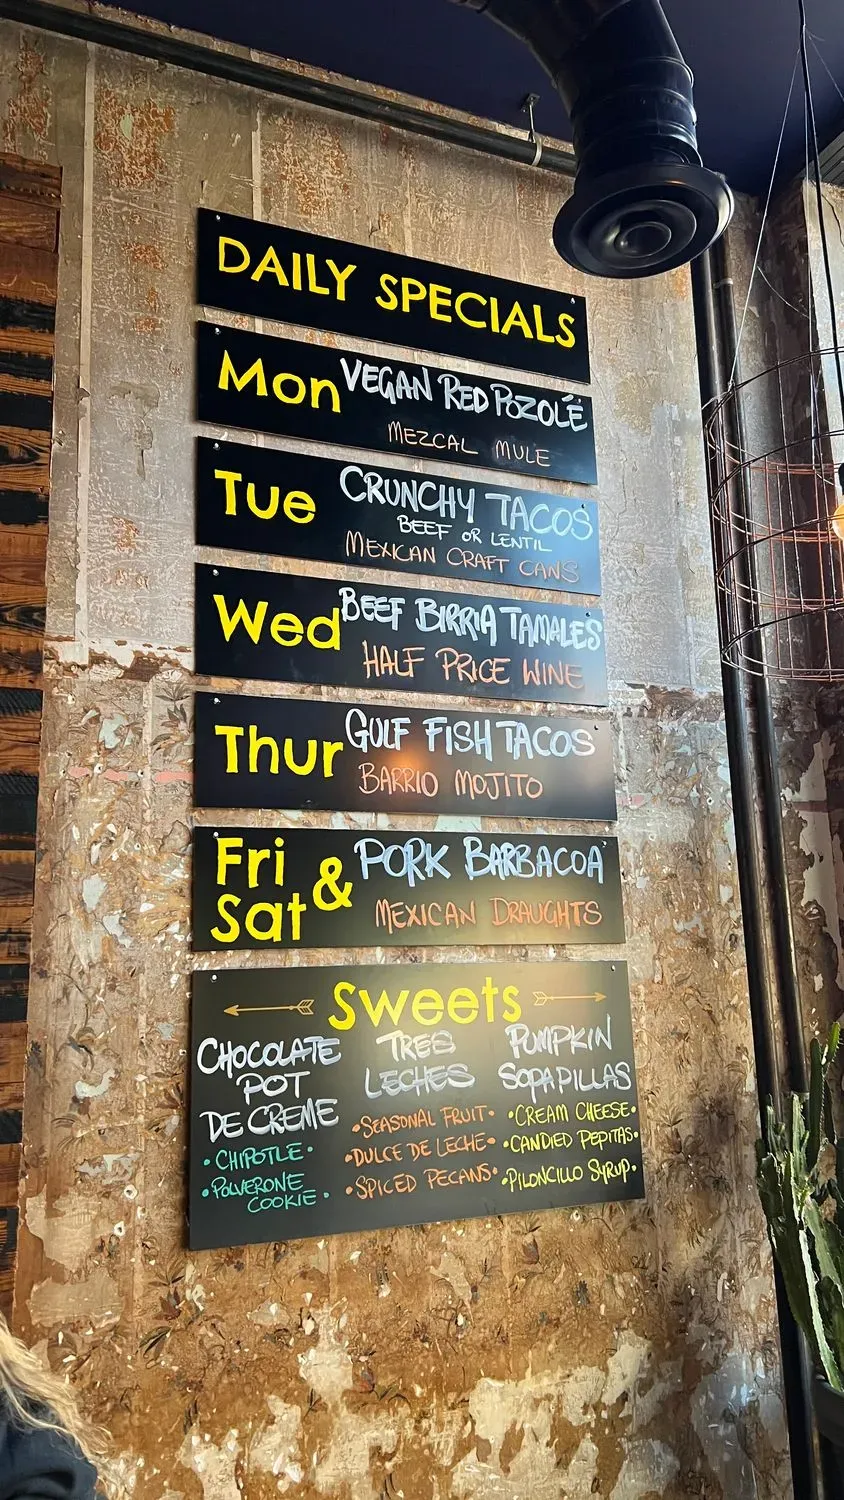 DAILY SPECIALS
Mon VEGAN RED POZOLÉ
MEZCAL MULE
Tue CRUNCHY TACOS
BEEF OR LENTIL
MEXICAN CRAFT CANS
Wed BEEF BIRRIA TAMALES
HALF PRICE WINE
Thur GULF FISH TACOS
BARRIO MOJITO
Fri & Sat PORK BARBACOA
MEXICAN DRAUGHTS
Sweets
CHOCOLATE
POT
DE CREME
• CHIPOTLE •
• POLVERONE
COOKIE •
TRES
LECHES
• SEASONAL FRUIT •
• DULCE DE LECHE •
• SPICED PECANS •
PUMPKIN
SOPAPILLAS
• CREAM CHEESE •
• CANDIED PEPITAS •
• PILONCILLO SYRUP •